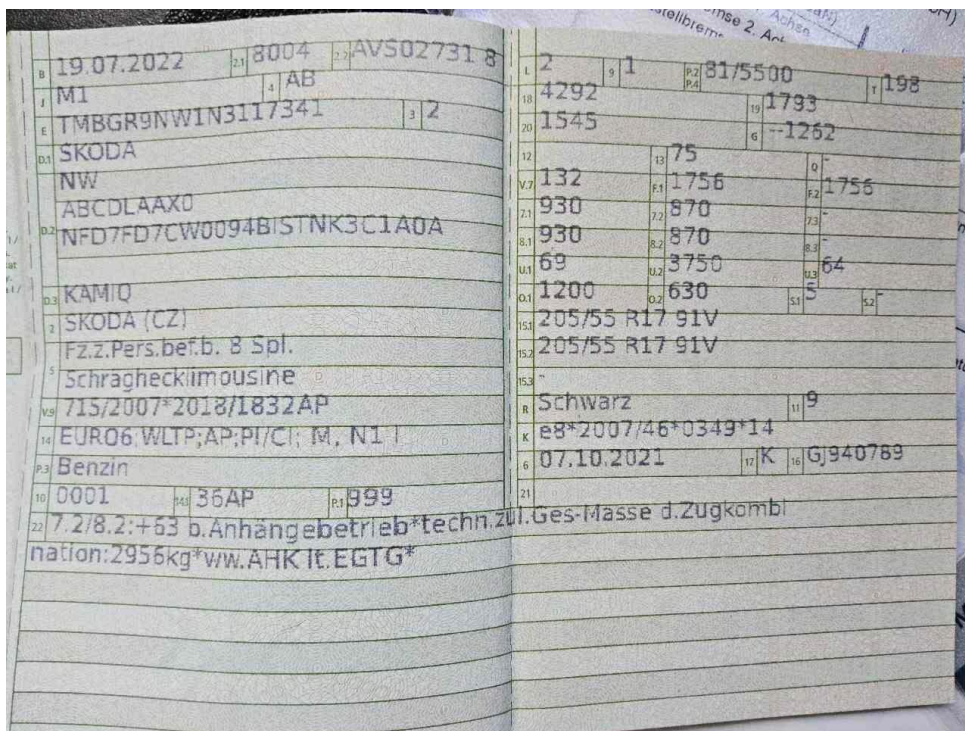 B 19.07.2022 2.1 8004 2.2 AVS02731 8
J M1 4 AB
E TMBGR9NW1N3117341 3 2
D.1 SKODA
NW
ABCDLAAX0
D.2 NFD7FD7CW0094BISTNK3C1A0A
D.3 KAMIQ
2 SKODA (CZ)
Fz.z.Pers.bef.b. 8 Spl.
5
Schräghecklimousine
V.9 715/2007*2018/1832AP
14 EURO6;WLTP;AP;PI/CI; M, N1 I
P.3 Benzin
10 0001 14.1 36AP P.1 999
22 7.2/8.2:+63 b.Anhängebetrieb*techn.zul.Ges-Masse d.Zugkombi
nation:2956kg*ww.AHK lt.EGTG*
L 2 9 1 P.2 P.4 81/5500 T 198
18 4292 19 1793
20 1545 G --1262
12 13 75 Q -
V.7 132 F.1 1756 F.2 1756
7.1 930 7.2 870 7.3 -
8.1 930 8.2 870 8.3 -
U.1 69 U.2 3750 U.3 64
O.1 1200 O.2 630 S.1 5 S.2 -
15.1 205/55 R17 91V
15.2 205/55 R17 91V
15.3 -
R Schwarz 11 9
K e8*2007/46*0349*14
6 07.10.2021 17 K 16 GJ940789
21